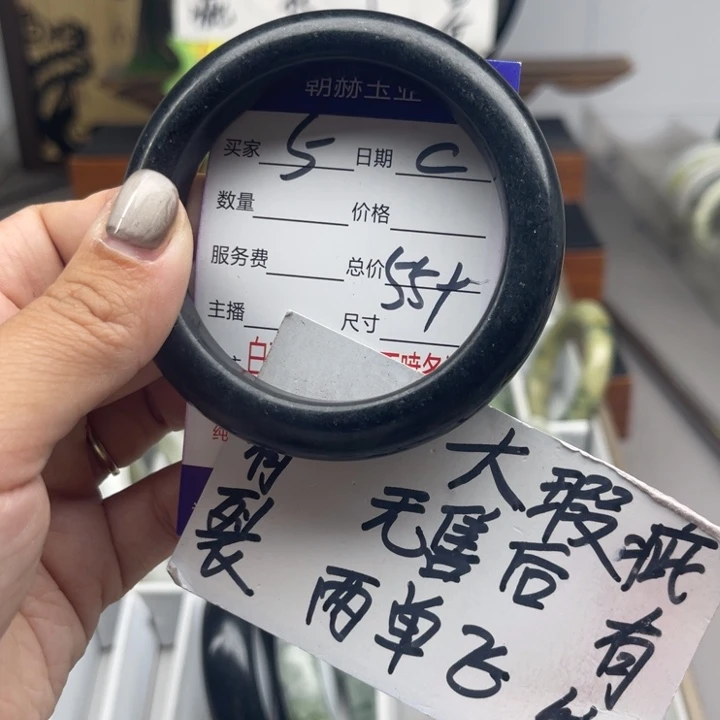 朝赫玉业
买家 5 日期 C
数量 价格
服务费 总价 55+
主播 尺寸
白
纯
大瑕疵有
有裂
无售后
两单飞
有